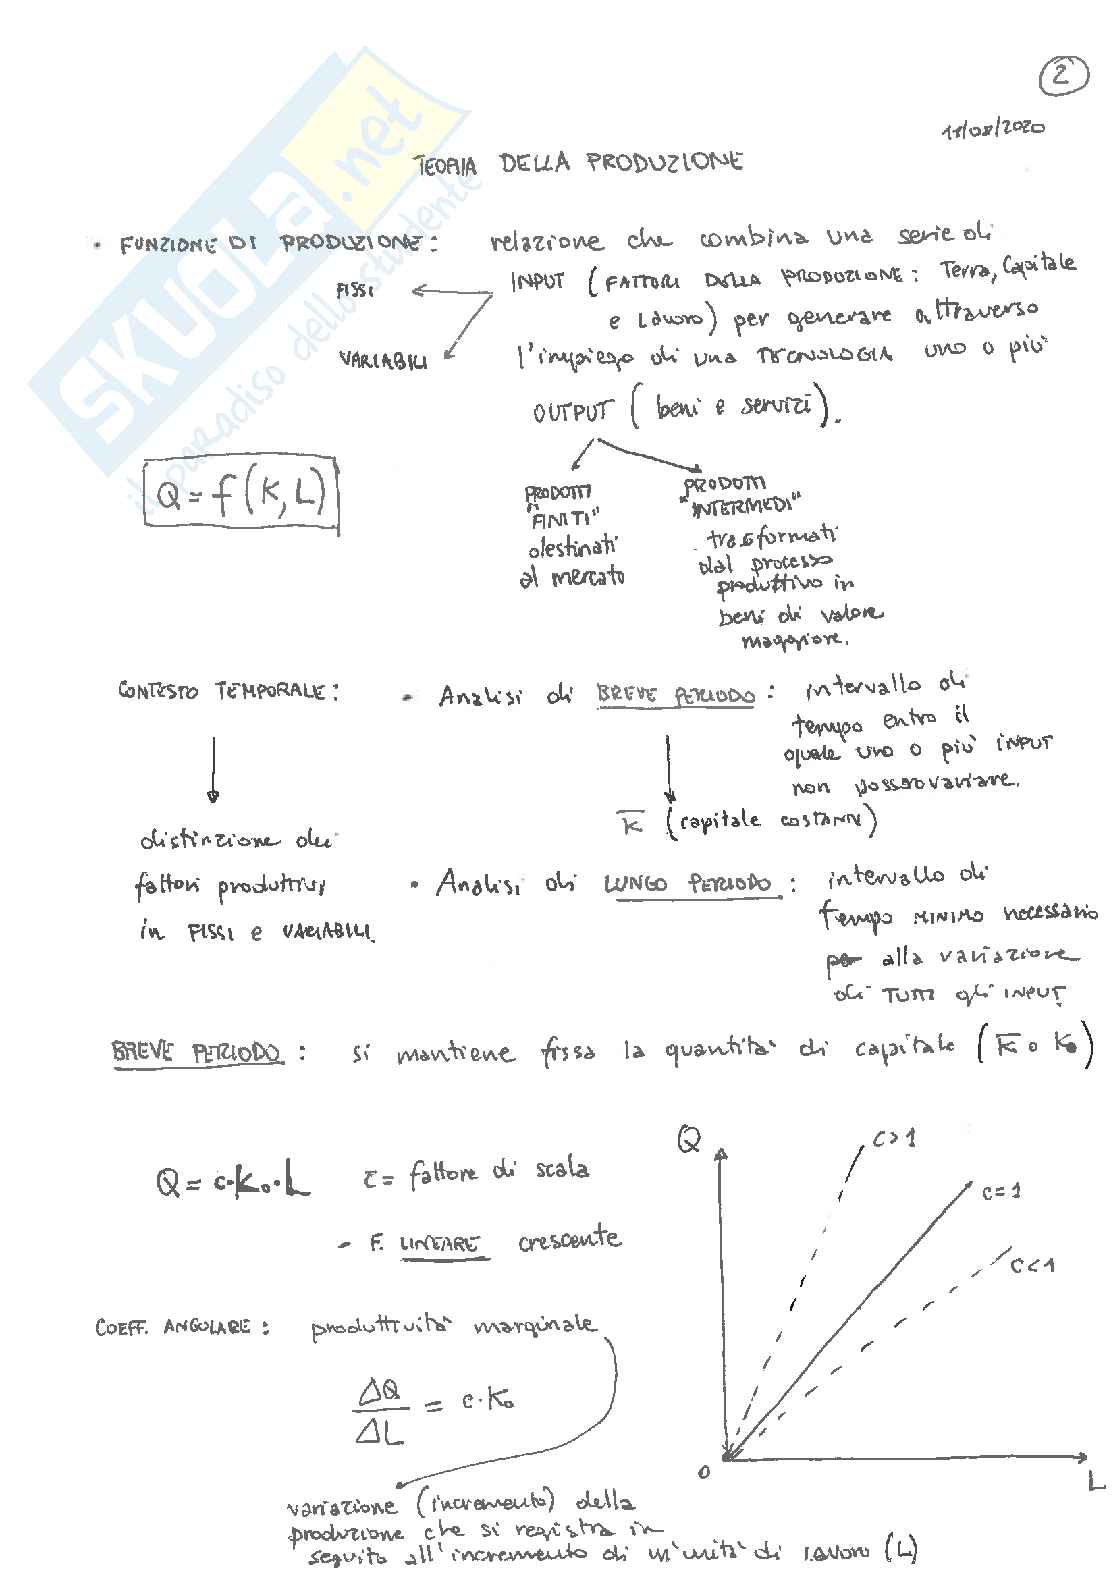 2
TEORIA DELLA PRODUZIONE
SKUOLA.net
il paradiso dello studente
• FUNZIONE DI PRODUZIONE: relazione che combina una serie di
FISSI
INPUT (FATTORI DELLA PRODUZIONE: Terra, Capitale
e Lavoro) per generare attraverso
VARIABILI
l'impiego di una TECNOLOGIA uno o più
OUTPUT (beni e servizi).
Q = f(K, L)
PRODOTTI
"FINITI"
destinati
al mercato
PRODOTTI
"INTERMEDI"
trasformati
dal processo
produttivo in
beni di valore
maggiore.
CONTESTO TEMPORALE:
• Analisi di BREVE PERIODO: intervallo di
tempo entro il
quale uno o più INPUT
non possono variare.
K̅ (capitale costante)
distinzione dei
fattori produttivi
in FISSI e VARIABILI.
• Analisi di LUNGO PERIODO: intervallo di
tempo MINIMO necessario
alla variazione
di TUTTI gli INPUT
BREVE PERIODO: si mantiene fissa la quantità di capitale (K̅ o K₀)
Q = c·K₀·L c = fattore di scala
- F. LINEARE crescente
COEFF. ANGOLARE: produttività marginale
ΔQ
ΔL
= c·K₀
variazione (incremento) della
produzione che si registra in
seguito all'incremento di un'unità di lavoro (L)
Q
c>1
c=1
c<1
0
L